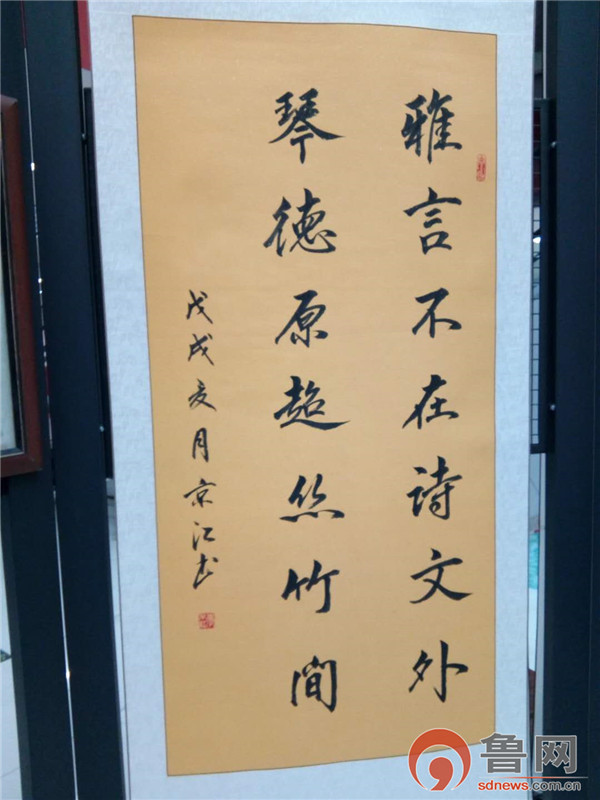 雅言不在诗文外
琴德原超丝竹间
戊戌夏月京江书
鲁网
sdnews.com.cn